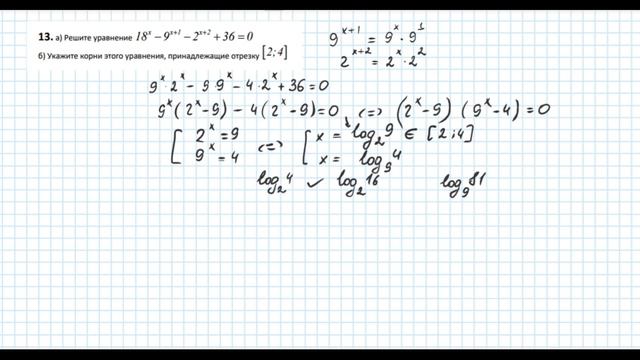 13. а) Решите уравнение 18^x − 9^{x+1} − 2^{x+2} + 36 = 0
б) Укажите корни этого уравнения, принадлежащие отрезку [2;4]
9^{x+1} = 9^x · 9^1
2^{x+2} = 2^x · 2^2
9^x · 2^x − 9·9^x − 4·2^x + 36 = 0
9^x (2^x − 9) − 4 (2^x − 9) = 0 <=> (2^x − 9) (9^x − 4) = 0
[ 2^x = 9 <=> [ x = log_2 9 ∈ [2;4]
9^x = 4 x = log_9 4
log_2 4 ✓ log_2 16 log_9 81